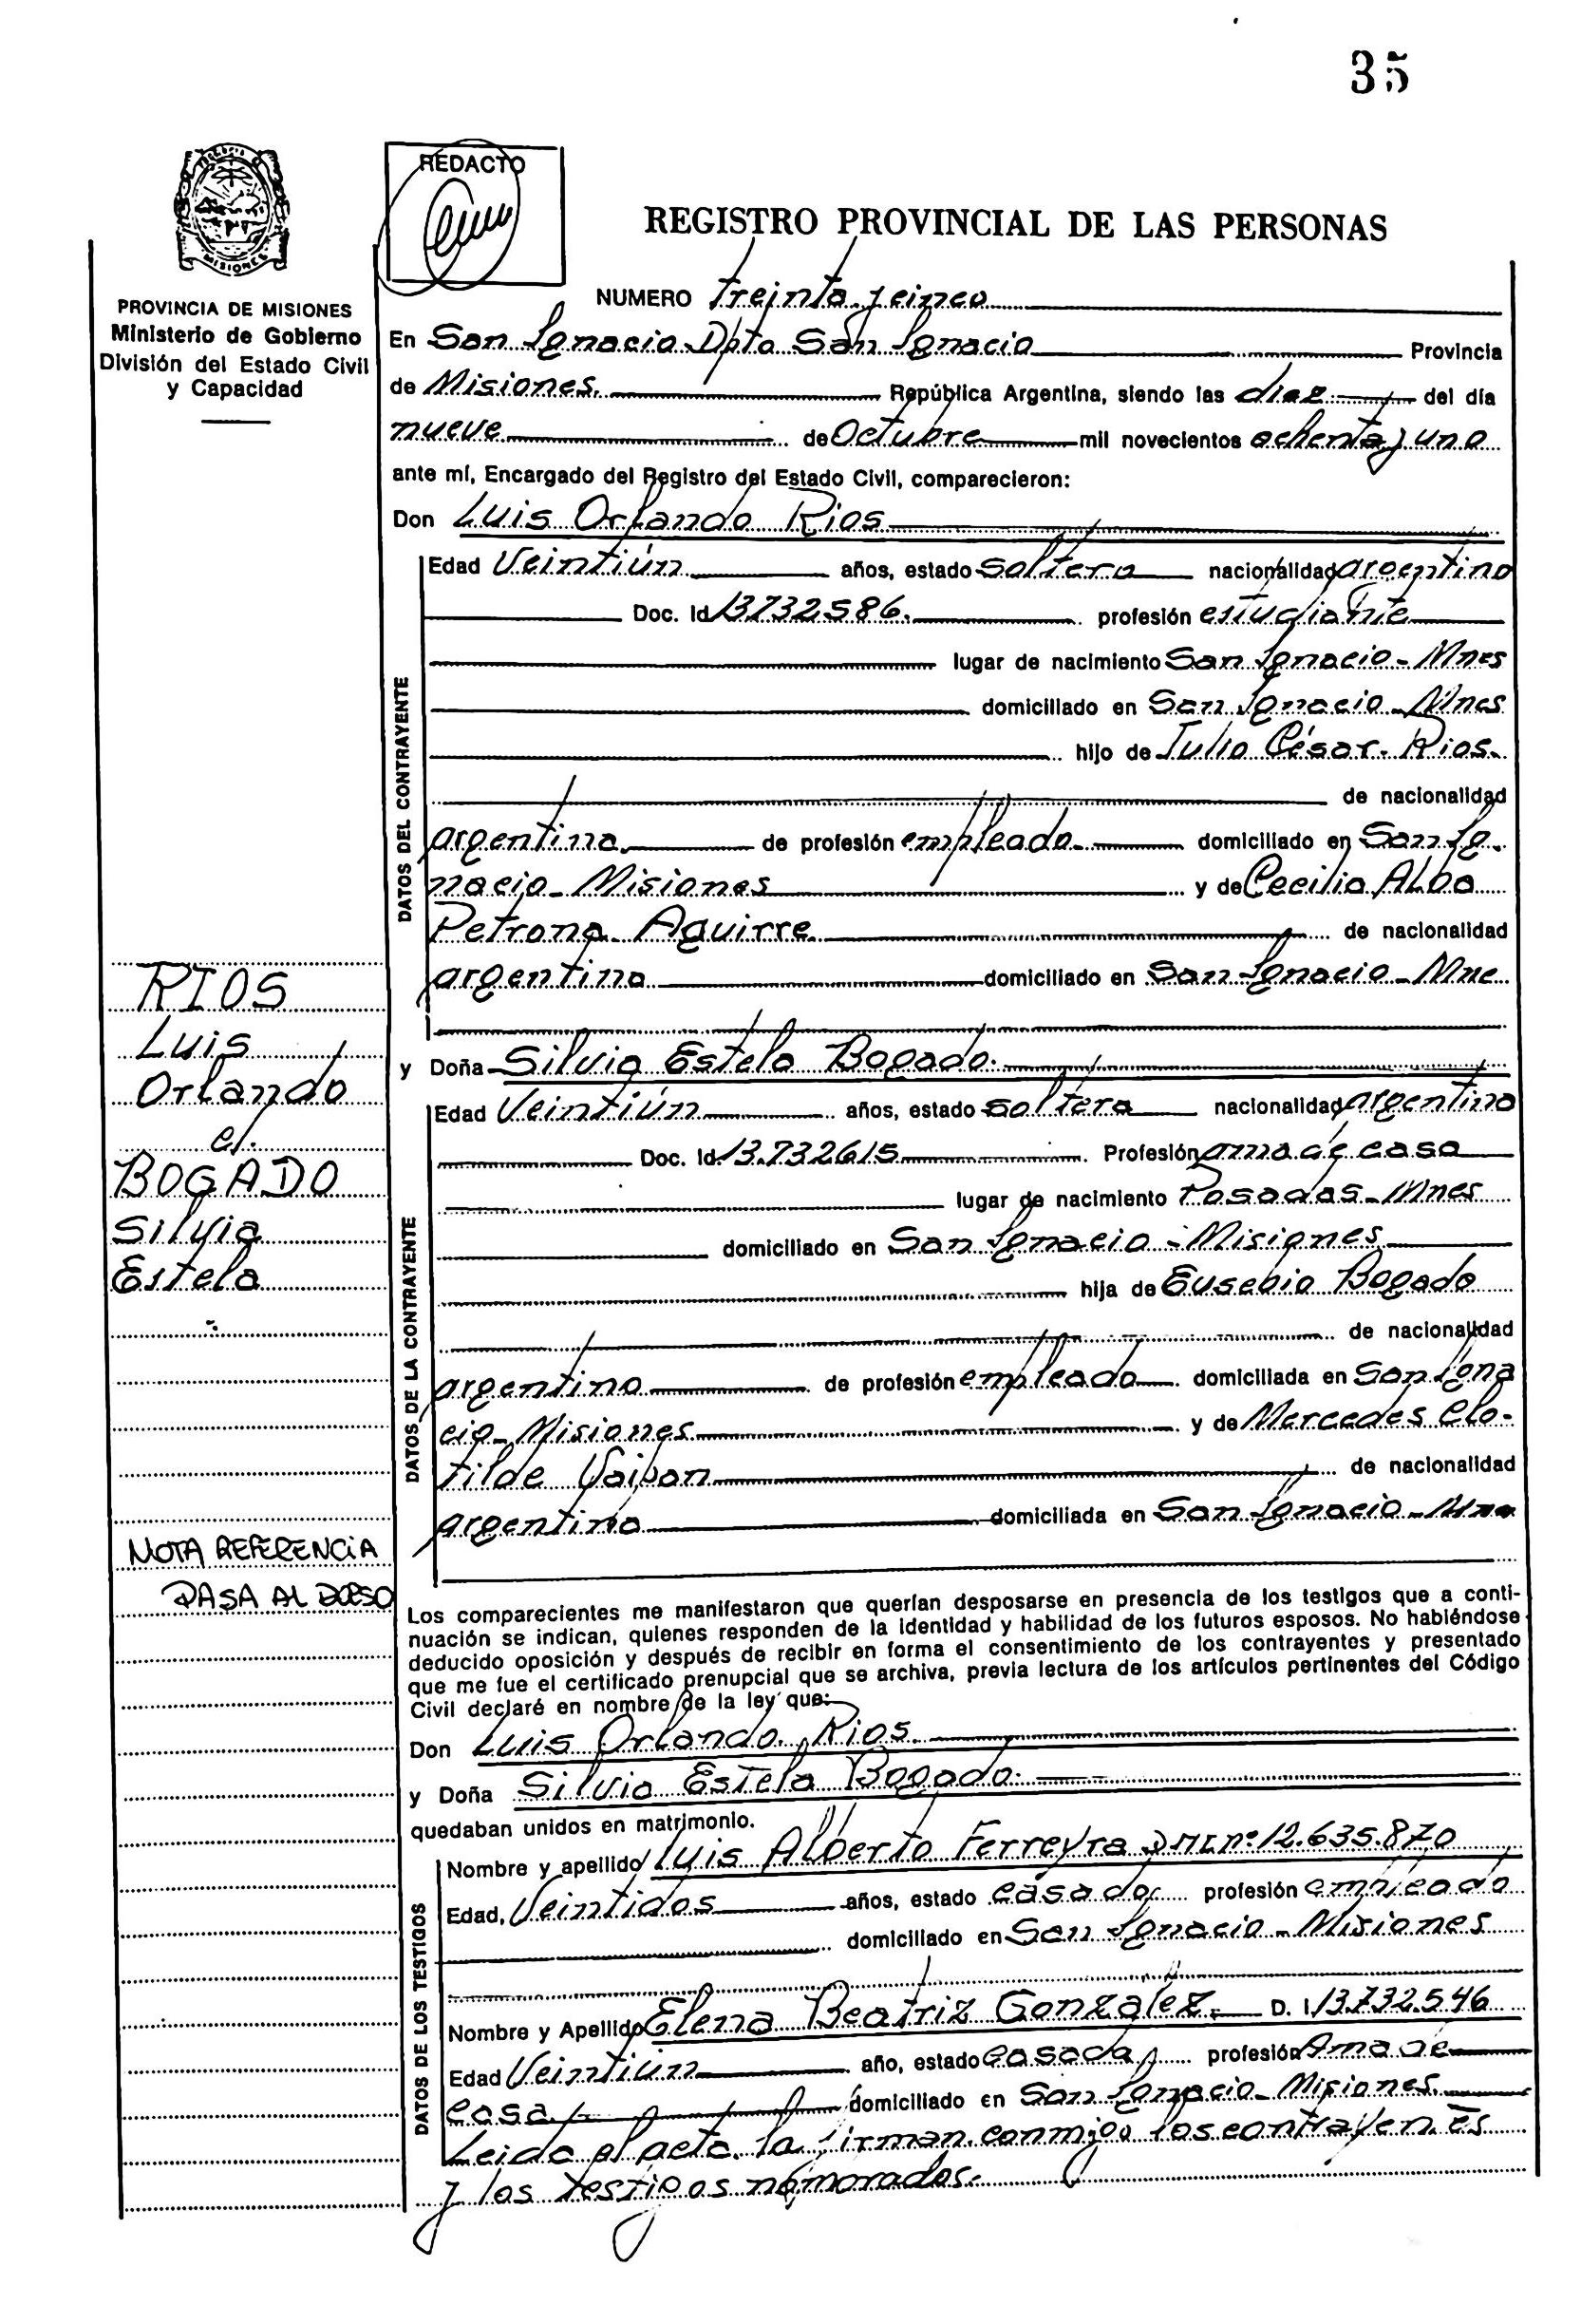 35
REDACTO
REGISTRO PROVINCIAL DE LAS PERSONAS
MISIONES
PROVINCIA DE MISIONES
Ministerio de Gobierno
División del Estado Civil
y Capacidad
NUMERO Treinta y cinco
En San Ignacio Dpto San Ignacio Provincia
de Misiones. República Argentina, siendo las diez del día
nueve de Octubre mil novecientos ochenta y uno
ante mí, Encargado del Registro del Estado Civil, comparecieron:
Don Luis Orlando Rios
DATOS DEL CONTRAYENTE
Edad Veintiún años, estado soltero nacionalidad argentino
Doc. Id 13732586. profesión estudiante
lugar de nacimiento San Ignacio - Mnes
domiciliado en San Ignacio - Mnes
hijo de Julio César Rios.
de nacionalidad
argentina de profesión empleado domiciliado en San Ig-
nacio - Misiones y de Cecilia Alba
Petrona Aguirre de nacionalidad
argentina domiciliado en San Ignacio - Mne
y Doña Silvia Estela Bogado.
DATOS DE LA CONTRAYENTE
Edad Veintiún años, estado soltera nacionalidad argentina
Doc. Id. 13.732615 Profesión ama de casa
lugar de nacimiento Posadas - Mnes
domiciliado en San Ignacio - Misiones
hija de Eusebio Bogado
de nacionalidad
argentino de profesión empleado domiciliada en San Igna
cio - Misiones y de Mercedes Clo-
tilde de nacionalidad
argentina domiciliada en San Ignacio -
RIOS
Luis
Orlando
c/.
BOGADO
Silvia
Estela
NOTA REFERENCIA
PASA AL DORSO
Los comparecientes me manifestaron que querían desposarse en presencia de los testigos que a conti-
nuación se indican, quienes responden de la identidad y habilidad de los futuros esposos. No habiéndose
deducido oposición y después de recibir en forma el consentimiento de los contrayentes y presentado
que me fue el certificado prenupcial que se archiva, previa lectura de los artículos pertinentes del Código
Civil declaré en nombre de la ley que:
Don Luis Orlando Rios
y Doña Silvia Estela Bogado.
quedaban unidos en matrimonio.
DATOS DE LOS TESTIGOS
Nombre y apellido Luis Alberto Ferreyra DNI nº 12.635.870
Edad, Veintidos años, estado casado, profesión empleado
domiciliado en San Ignacio - Misiones
Nombre y Apellido Elena Beatriz Gonzalez. D. I. 13.732.546
Edad Veintiún año, estado casada, profesión Ama de
casa domiciliado en San Ignacio - Misiones.
Leida el acta, la firman conmigo los contrayentes
y los testigos nombrados.